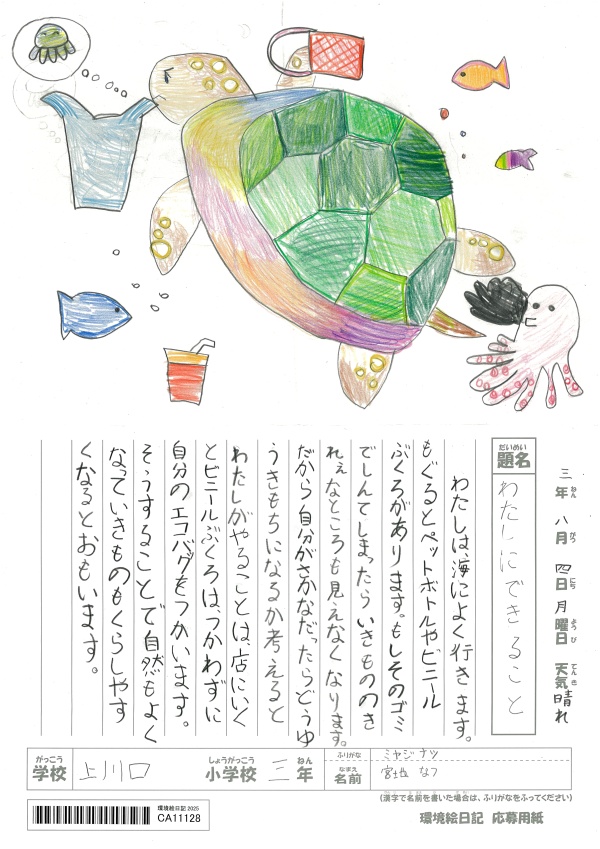 三年ねん 八月がつ 四日にち 月曜日ようび 天気てんき 晴れ
題名だいめい
わたしにできること
わたしは、海によく行きます。
もぐるとペットボトルやビニール
ぶくろがあります。もしそのゴミ
でしんてしまったらいきもののき
れぇなところも見えなくなります。
だから自分がさかなだったらどうゆ
うきもちになるか考えると
わたしがやることは、店にいく
とビニールぶくろは、つかわずに
自分のエコバグをつかいます。
そうすることで自然もよく
なっていきものもくらしやす
くなるとおもいます。
がっこう 学校 上川口 しょうがっこう 小学校 三 ねん 年
ふりがな ミヤジナツ
なまえ 名前 宮地 なつ
(漢字で名前を書いた場合は、ふりがなをふってください)
環境絵日記 2025
CA11128
環境絵日記 応募用紙